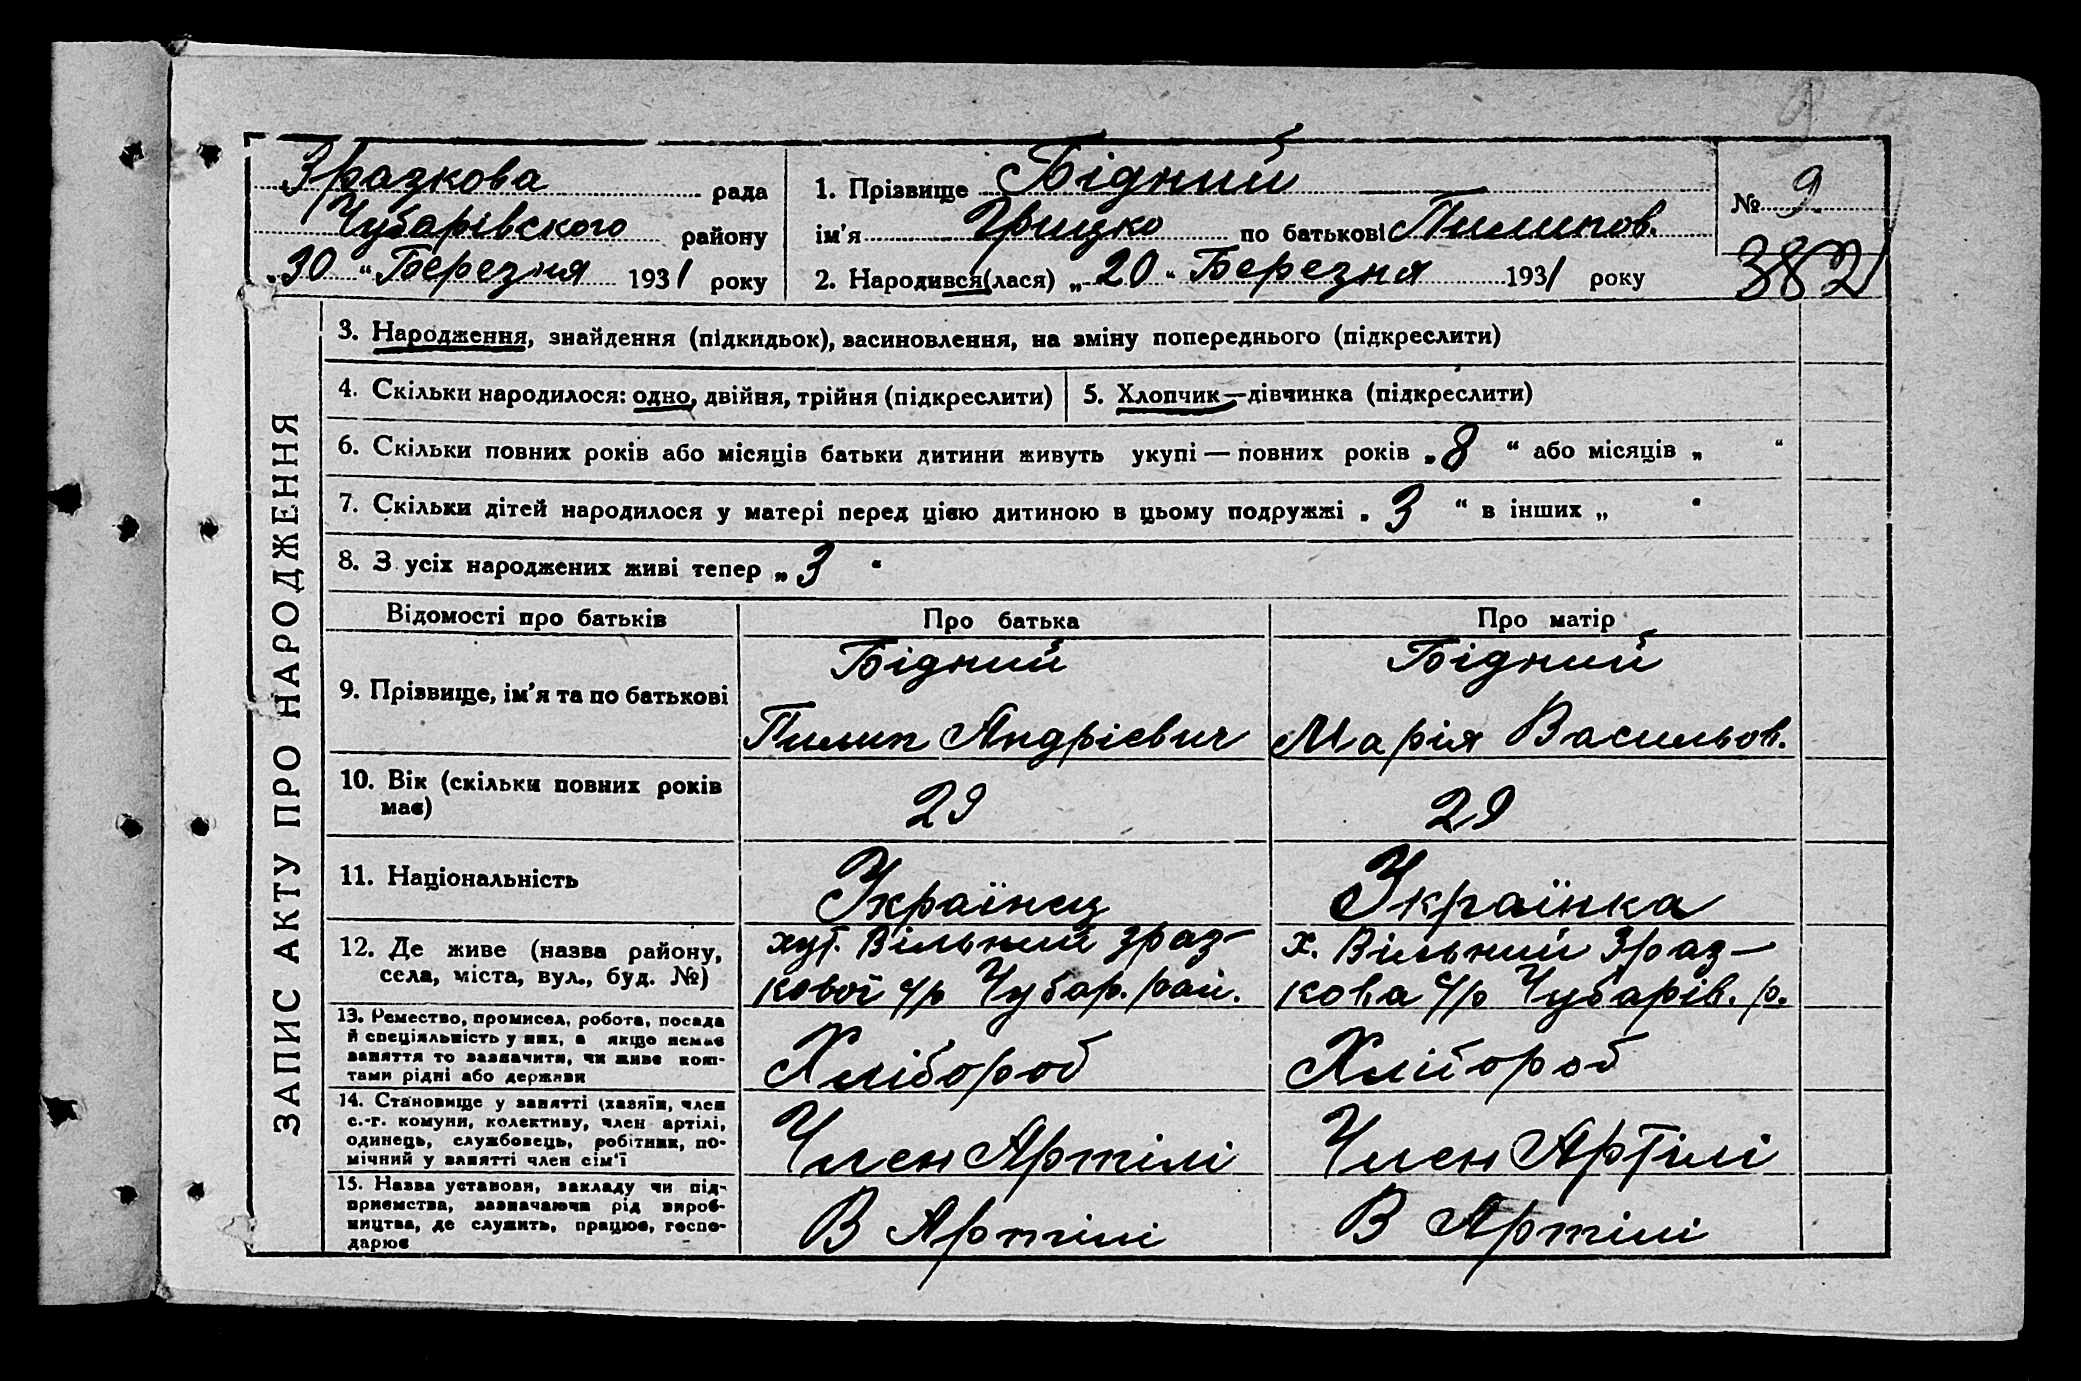 Зразкова рада
Чубарівського району
„30“ Березня 1931 року
1. Прізвище Бідний
ім'я Грицко по батькові Пилипов.
2. Народився(лася) „20“ Березня 1931 року
№ 9
382
ЗАПИС АКТУ ПРО НАРОДЖЕННЯ
3. Народження, знайдення (підкидьок), засиновлення, на зміну попереднього (підкреслити)
4. Скільки народилося: одно, двійня, трійня (підкреслити)
5. Хлопчик—дівчинка (підкреслити)
6. Скільки повних років або місяців батьки дитини живуть укупі — повних років „8“ або місяців „ “
7. Скільки дітей народилося у матері перед цією дитиною в цьому подружжі „3“ в інших „ “
8. З усіх народжених живі тепер „3“
Відомості про батьків
Про батька
Про матір
9. Прізвище, ім'я та по батькові
Бідний
Пилип Андрієвич
Бідний
Марія Васильов.
10. Вік (скільки повних років
має)
29
29
11. Національність
Українец
Українка
12. Де живе (назва району,
села, міста, вул., буд. №)
хут. Вільний Зраз-
кової с/р Чубар. рай.
х. Вільний Зраз-
кова с/р Чубарів. р.
13. Ремество, промисел, робота, посада
й спеціяльність у них, а якщо немає
заняття то зазначити, чи живе кош-
тами рідні або держави
Хлібороб
Хлібороб
14. Становище у занятті (хазяїн, член
с.-г. комуни, колективу, член артілі,
одинець, службовець, робітник, по-
мічний у занятті член сім'ї
Член Артілі
Член Артілі
15. Назва установи, закладу чи під-
приємства, зазначаючи рід вироб-
ництва, де служить, працює, госпо-
дарює
В Артілі
В Артілі